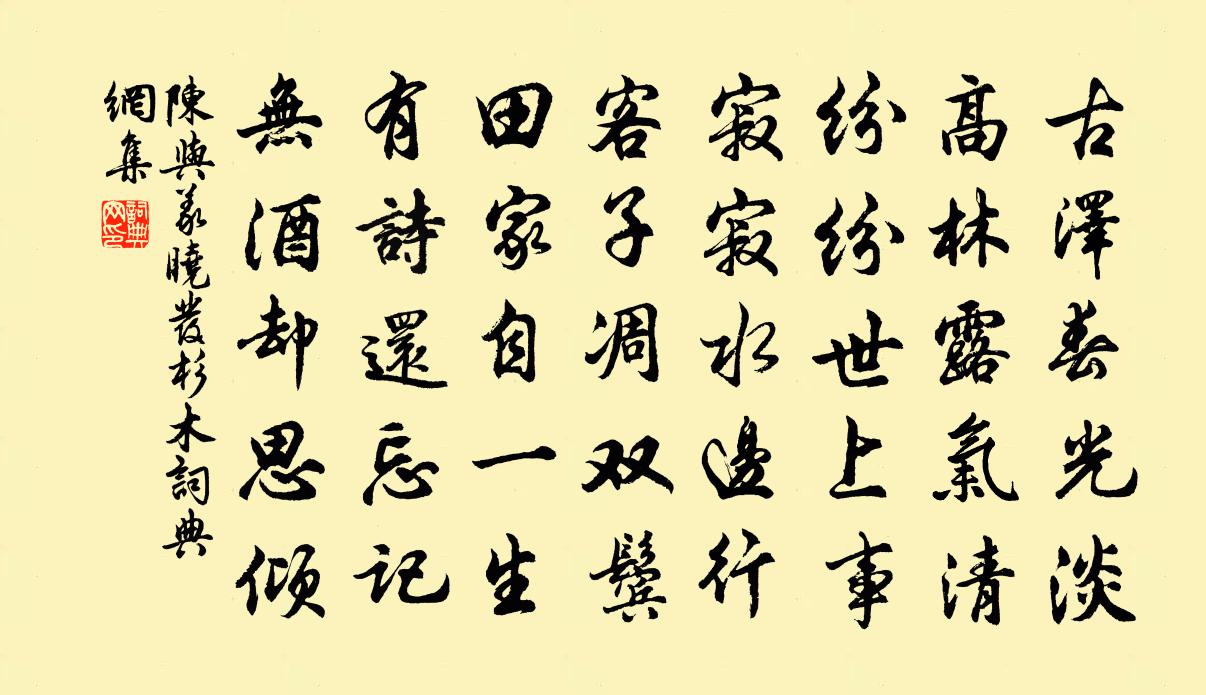 古澤春光淡
高林露氣清
紛紛世上事
寂寂水邊行
客子凋双鬢
田家自一生
有詩還忘記
無酒却思傾
陳與義曉發杉木詞典
網集
詞典
网印